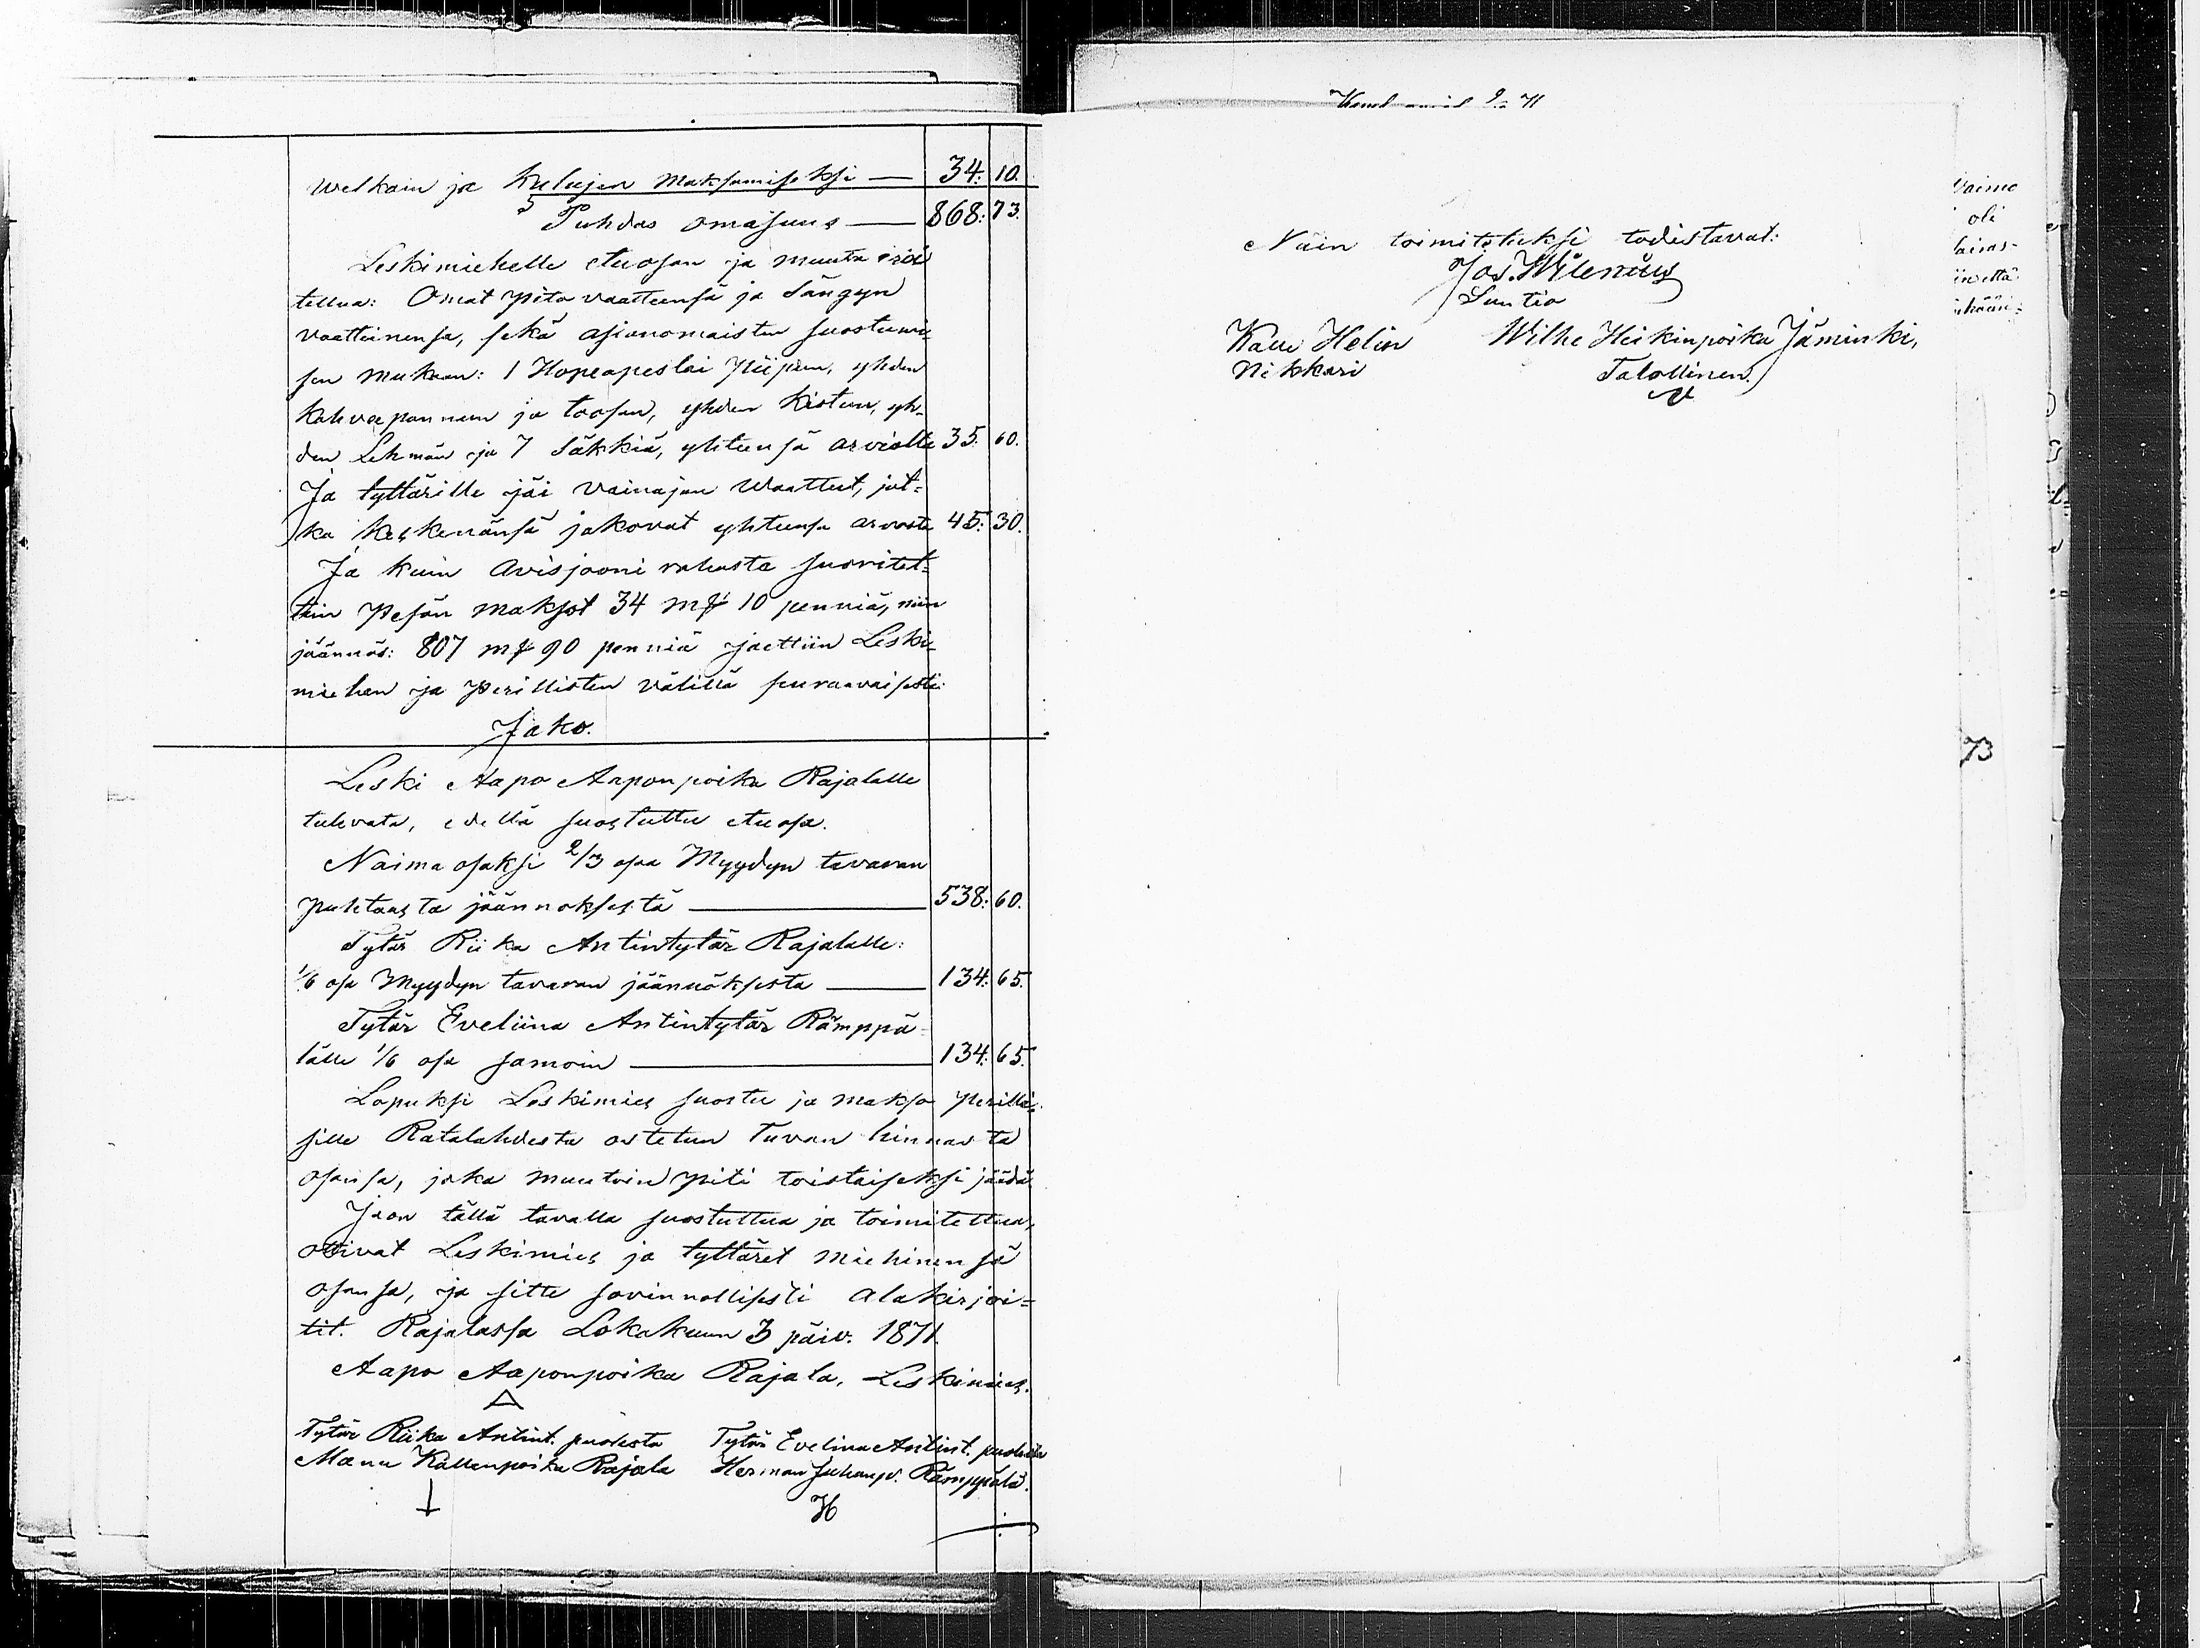 welkain ja kulujen maksamiseksi — 34: 10.
Puhdas omasuus — 868: 73.
Leskimiehelle etuosan ja muuta
tellua: Omat pito vaatteensa ja Sängyn
vaatteinensa, sekä asianomaisten suostumi-
sen mukaan: 1 Hopeapeslai Piipun, yhden
kahveepannun ja toosan, yhden Kistun, yh-
den Lehmän ja 7 Säkkiä, yhteensä arviolta 35. 60.
Ja tyttärille jäi Vainajan Waatteet, jot=
ka keskenänsä jakovat yhteensa arvosta 45: 30.
Ja kuin Avisjooni rahasta suoritet=
tiin Pesän maksot 34 mk 10 penniä, niin
jäännös: 807 mk 90 penniä jaettiin Leski-
miehen ja Perillisten välillä seuraavaisesti:
Jako.
Leski Aapo Aaponpoika Rajalalle
tulevata, edellä suostuttu etuosa.
Naima osaksi 2/3 osaa Myydyn tavaran
puhtaasta jäännoksesta — 538: 60.
Tytär Riika Antintytär Rajalalle:
1/6 osa Myydyn tavaran jäännöksesta — 134: 65.
Tytär Eveliina Antintytär Rämppä-
lälle 1/6 osa samoin — 134: 65.
Lopuksi Leskimies suostu ja maksa Perilli-
sille Ratalahdesta ostetun Tuvan hinnasta
osansa, joka muutoin piti toistaiseksi jäädä.
Jaon tällä tavalla suostuttua ja toimitettua,
ottivat Leskimies ja tyttäret miehinensä
osansa, ja sitte sovinnollisesti alakirjoi=
tit. Rajalassa Lokakuun 3 päiv. 1871.
Aapo Aaponpoika Rajala, Leskimies.
Tytär Riika Antint. puolesta Tytär Evelina Antint. puolesta
Manu Kallenpoika Rajala Herman Juhanp. Rämppälä.
H
Näin toimitetuksi todistavat:
Jos. Wilenius
Suntio
Kalle Helin Wilhe Heikinpoika Jäminki,
Nikkari Talollinen.
Vaimo
oli
73